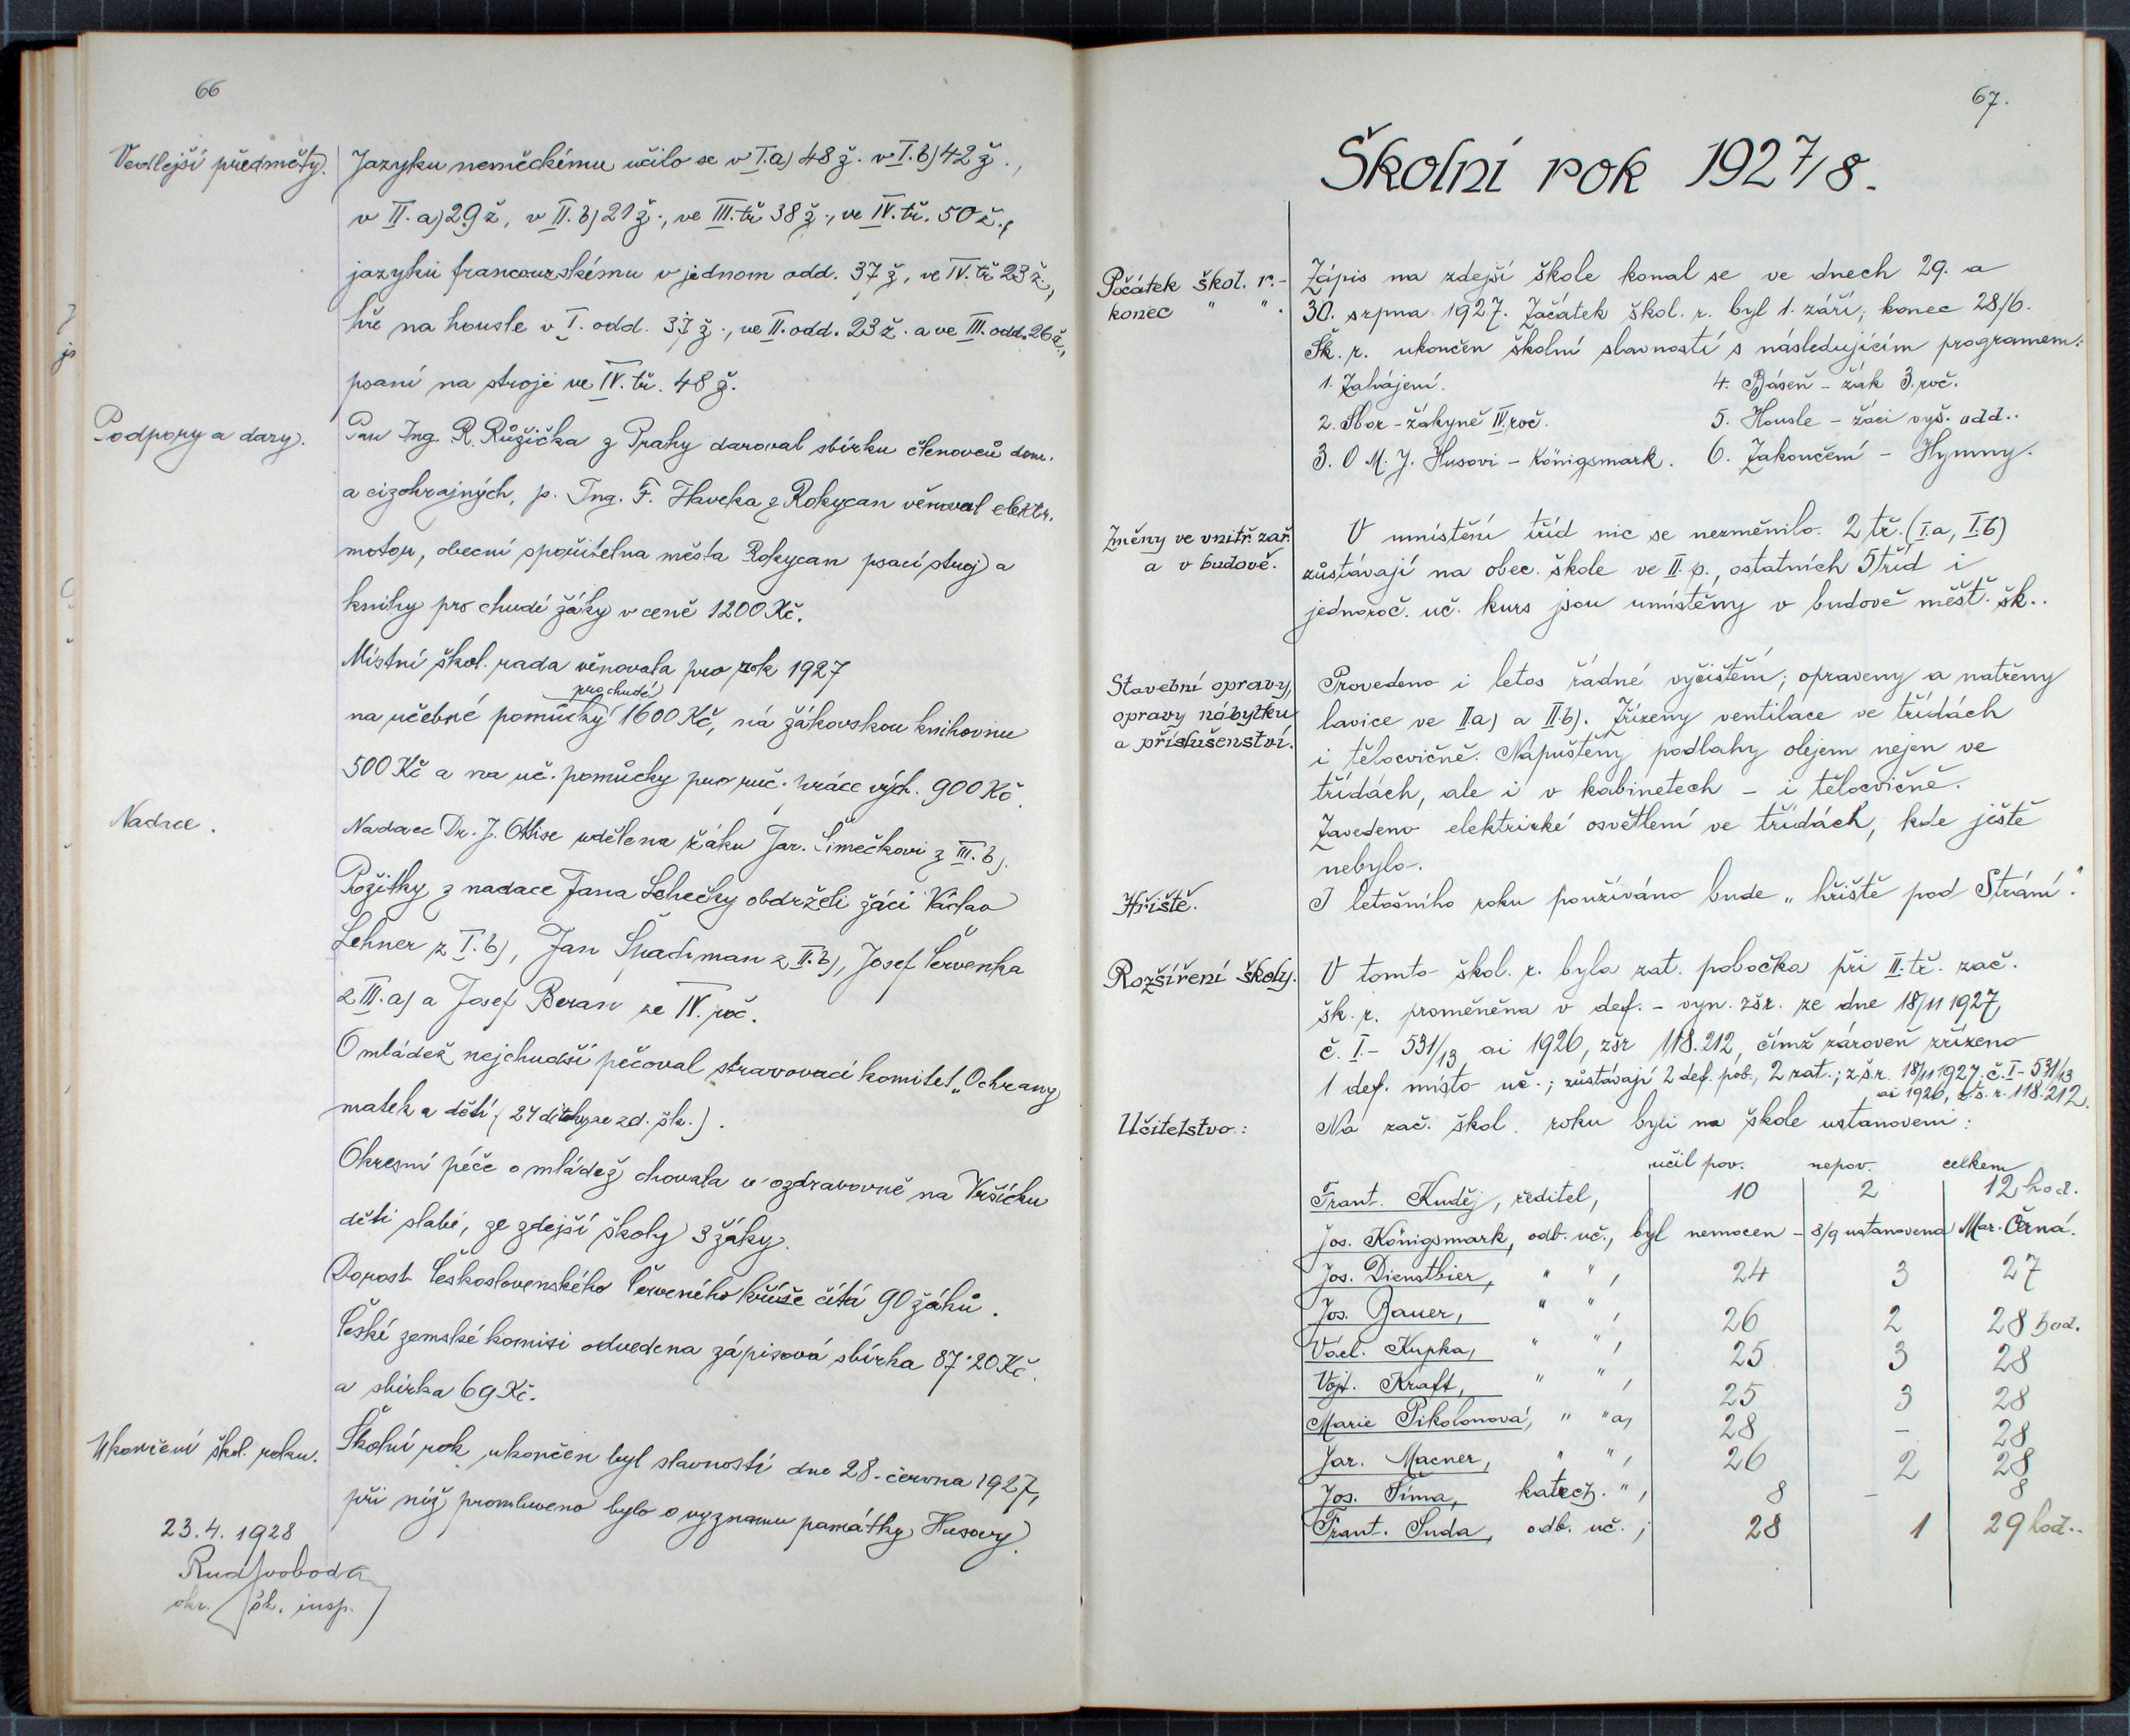 66
Vedlejší předměty. Jazyku německému učilo se v I.a) 48 ž. v I.b) 42 ž.,
v II.a) 29 ž, v II.b) 21 ž., ve III.tř 38 ž., ve IV.tř. 50 ž.,
jazyku francouzskému v jednom odd. 37 ž, ve IV.tř 23 ž.,
hře na housle v I. odd. 37 ž., ve II.odd. 23 ž. a ve III.odd. 26 ž.,
psaní na stroji ve IV.tř. 48 ž.
Podpory a dary. Pan Ing. R. Růžička z Prahy daroval sbírku členovců dom.
a cizokrajných, p. Ing. F. Havelka z Rokycan věnoval elektr.
motor, obecní spořitelna města Rokycan psací stroj a
knihy pro chudé žáky v ceně 1200 Kč.
Místní škol. rada věnovala pro rok 1927
pro chudé
na učebné pomůcky 1600 Kč, na žákovskou knihovnu
500 Kč a na uč. pomůcky pro ruč. práce vých. 900 Kč.
Nadace. Nadace Dr. J. udělena žáku Jar. Šimečkovi z III.b).
Požitky z nadace Jana Lehečky obdrželi žáci Václav
Lehner z I.b), Jan Špachman z II.b), Josef Červenka
z III.a) a Josef Beran ze IV. roč.
O mládež nejchudší pečoval stravovací komitét „Ochrany
matek a dětí, (24 dítky ze zd. šk.).
Okresní péče o mládež chovala v ozdravovně na Vršíčku
děti slabé, ze zdejší školy 3 žáky.
Dorost Československého Červeného kříže čítá 90 žáků.
České zemské komisi odvedena zápisová sbírka 87·20 Kč.
a sbírka 69 Kč.
Ukončení škol. roku. Školní rok ukončen byl slavností dne 28. června 1927,
při níž promluveno bylo o významu památky Husovy.
23.4.1928
Rud Svoboda
okr. šk. insp.
67.
Školní rok 1927/8.
Počátek škol. r. - Zápis na zdejší škole konal se ve dnech 29. a
konec " ". 30. srpna 1927. Začátek škol. r. byl 1. září, konec 28/6.
Šk. r. ukončen školní slavností s následujícím programem:
1. Zahájení. 4. Báseň - žák 3. roč.
2. Sbor - žákyně IV. roč. 5. Housle - žáci vyš. odd..
3. O M. J. Husovi - Königsmark. 6. Zakončení - Hymny.
Změny ve vnitř. zař. V umístění tříd nic se nezměnilo. 2 tř. (I.a, I.b)
a v budově. zůstávají na obec. škole ve II. p., ostatních 5 tříd i
jednoroč. uč. kurs jsou umístěny v budově měšť. šk..
Stavební opravy, Provedeno i letos řádné vyčistění; opraveny a natřeny
opravy nábytku lavice ve IIa) a II.b). Zřízeny ventilace ve třídách
a příslušenství. i tělocvičně. Napuštěny podlahy olejem nejen ve
třídách, ale i v kabinetech - i tělocvičně.
Zavedeno elektrické osvětlení ve třídách, kde ještě
nebylo.
Hřiště. I letošního roku používáno bude „hřiště pod Strání."
Rozšíření školy. V tomto škol. r. byla zat. pobočka při II.tř. zač.
šk. r. proměněna v def. - vyn. zšr. ze dne 18/11 1927,
č. I.- 531/13 ai 1926, zšr 118.212, čímž zároveň zřízeno
1 def. místo uč.; zůstávají 2 def. pob., 2 zat.; z.š.r. 18/11 1927. č. I- 531/13
ai 1926, z.š.r. 118.212.
Učitelstvo: Na zač. škol. roku byli na škole ustanoveni:
učil pov. nepov. celkem
Frant. Kuděj, ředitel, 10 2 12 hod.
Jos. Königsmark, odb. uč., byl nemocen - 8/9 ustanovena Mar. Černá.
Jos. Dienstbier, " ", 24 3 27
Jos. Bauer, " ", 26 2 28 hod.
Václ. Kupka, " ", 25 3 28
Vojt. Kraft, " ", 25 3 28
Marie Pikolonová, " "a, 28 – 28
Jar. Macner, " ", 26 2 28
Jos. Šíma, katech. ", 8 – 8
Frant. Suda, odb. uč.; 28 1 29 hod..